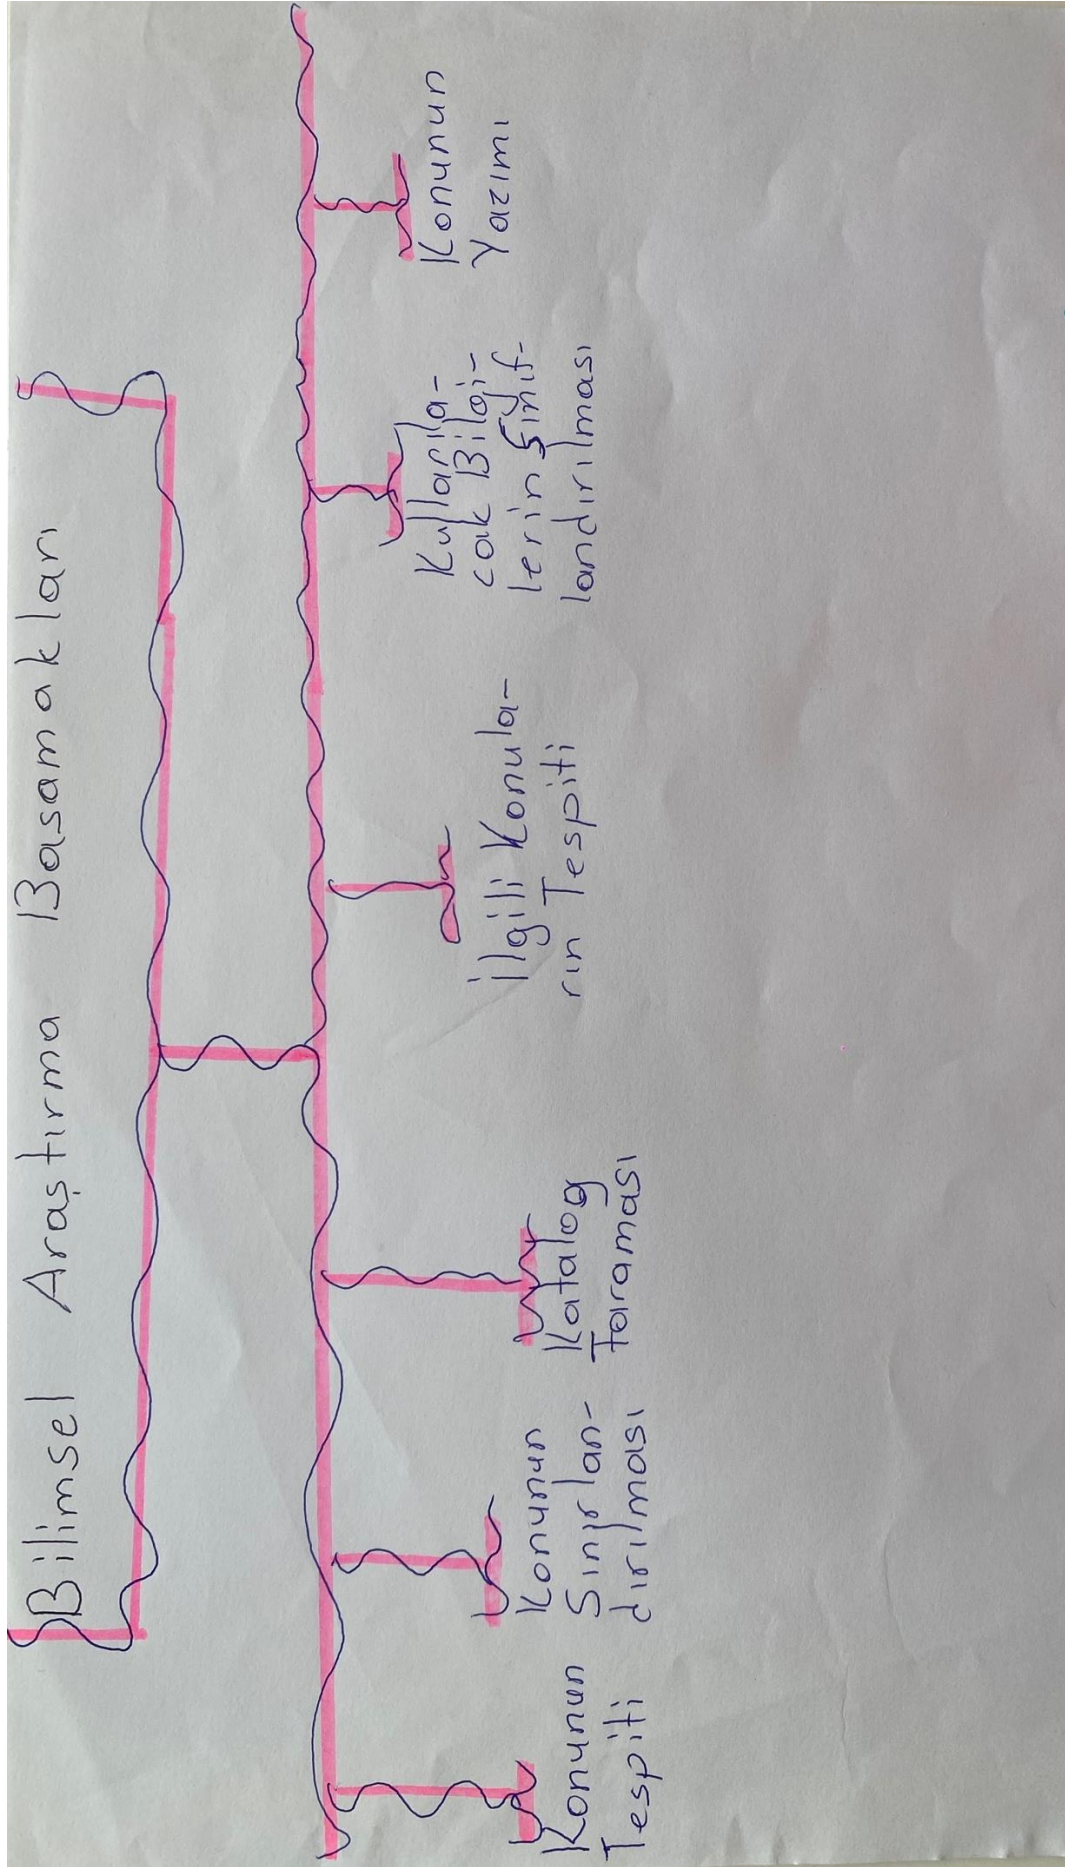 Bilimsel Araştırma Basamakları
Konunun
Tespiti
Konunun
Sınırlan-
dırılması
Katalog
Taraması
İlgili Konula-
rın Tespiti
Kullanıla-
cak Bilgi-
lerin Sınıf-
landırılması
Konunun
Yazımı